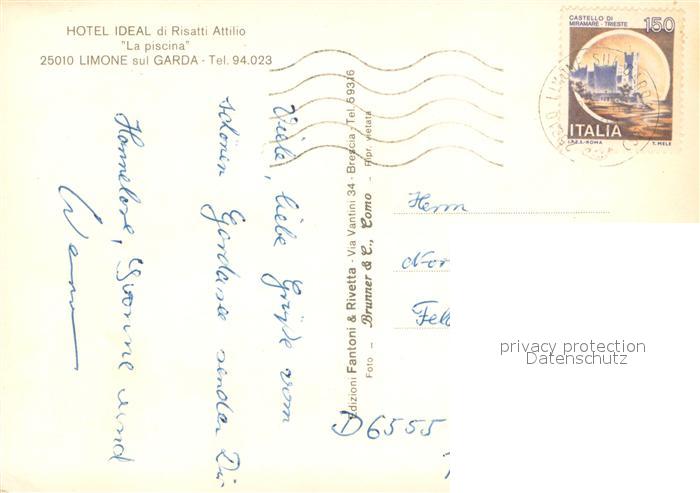 HOTEL IDEAL di Risatti Attilio
"La piscina"
25010 LIMONE sul GARDA - Tel. 94.023
CASTELLO DI
MIRAMARE - TRIESTE
150
ITALIA
I.P.Z.S. - ROMA
T. MELE
Viele, liebe Grüße vom
schönen Gardasee senden Dir
Hannelore, Yvonne und
Werner
Edizioni Fantoni & Rivetta - Via Vantini 34 - Brescia - Tel. 59316
Foto - Brunner & C., Como - Ripr. vietata
Herrn
Nor
Feld
D6555
privacy protection
Datenschutz